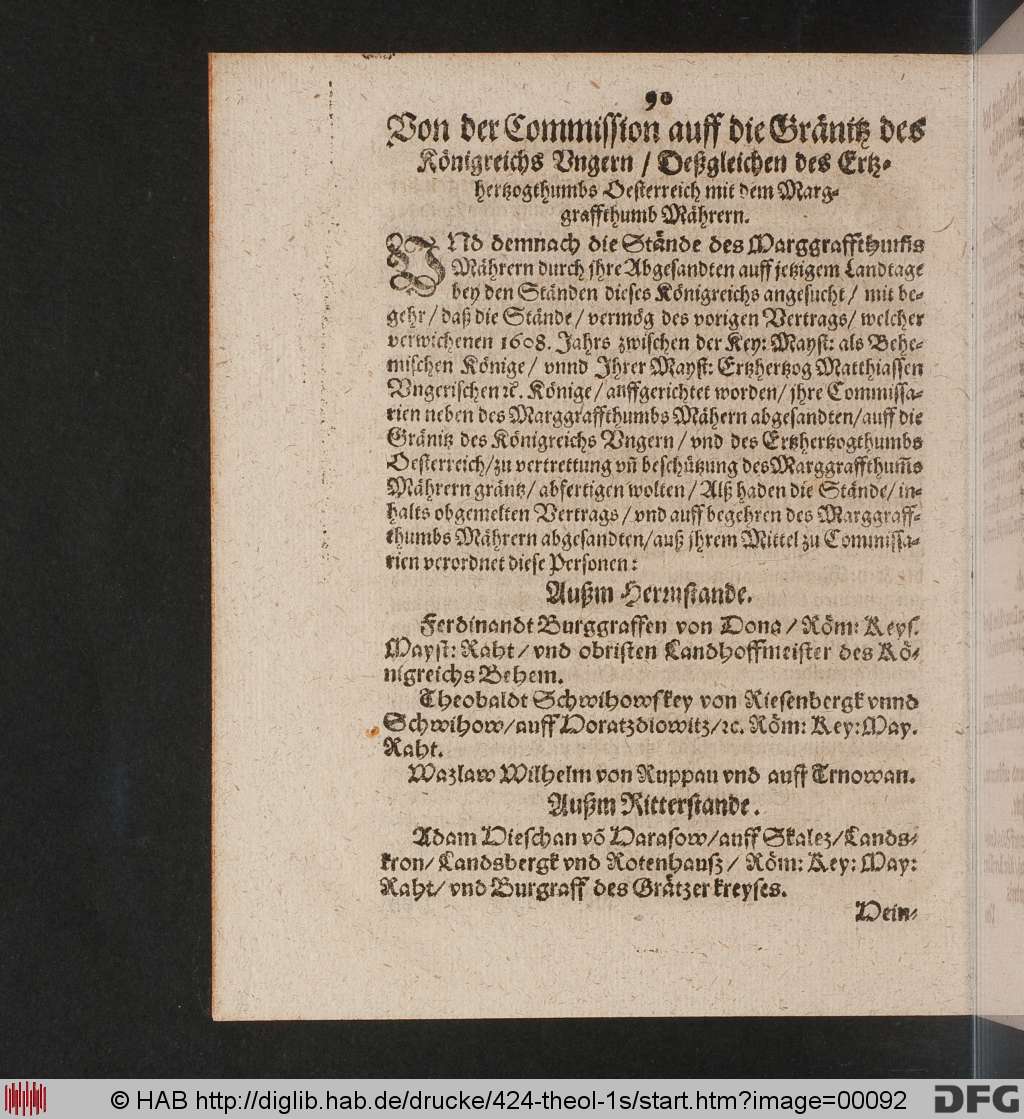 90
Von der Commission auff die Gränitz des
Königreichs Vngern / Deßgleichen des Ertz-
hertzogthumbs Oesterreich mit dem Marg-
graffthumb Mährern.
VNd demnach die Stände des Marggraffthumbs
Mährern durch jhre Abgesandten auff jetzigem Landtage
bey den Ständen dieses Königreichs angesucht / mit be-
gehr / daß die Stände / vermög des vorigen Vertrags / welcher
verwichenen 1608. Jahrs zwischen der Key: Mayst: als Behe-
mischen Könige / vnnd Jhrer Mayst: Ertzhertzog Matthiassen
Vngerischen ꝛc. Könige / auffgerichtet worden / jhre Commissa-
rien neben des Marggraffthumbs Mähern abgesandten / auff die
Gränitz des Königreichs Vngern / vnd des Ertzhertzogthumbs
Oesterreich / zu vertrettung vñ beschützung des Marggraffthum̃s
Mährern gräntz / abfertigen wolten / Alß haden die Stände / in-
halts obgemelten Vertrags / vnd auff begehren des Marggraff-
thumbs Mährern abgesandten / auß jhrem Mittel zu Commissa-
rien verordnet diese Personen:
Außm Herrnstande.
Ferdinandt Burggraffen von Dona / Röm: Keys.
Mayst: Raht / vnd obristen Landhoffmeister des Kö-
nigreichs Behem.
Theobaldt Schwihowskey von Riesenbergk vnnd
Schwihow / auff Horatzdiowitz / ꝛc. Röm: Key: May.
Raht.
Wazlaw Wilhelm von Ruppau vnd auff Trnowan.
Außm Ritterstande.
Adam Hieschan võ Harasow / auff Skalez / Lands-
kron / Landsbergk vnd Rotenhauß / Röm: Key: May:
Raht / vnd Burgraff des Grätzer kreyses.
Hein-
© HAB http://diglib.hab.de/drucke/424-theol-1s/start.htm?image=00092
DFG